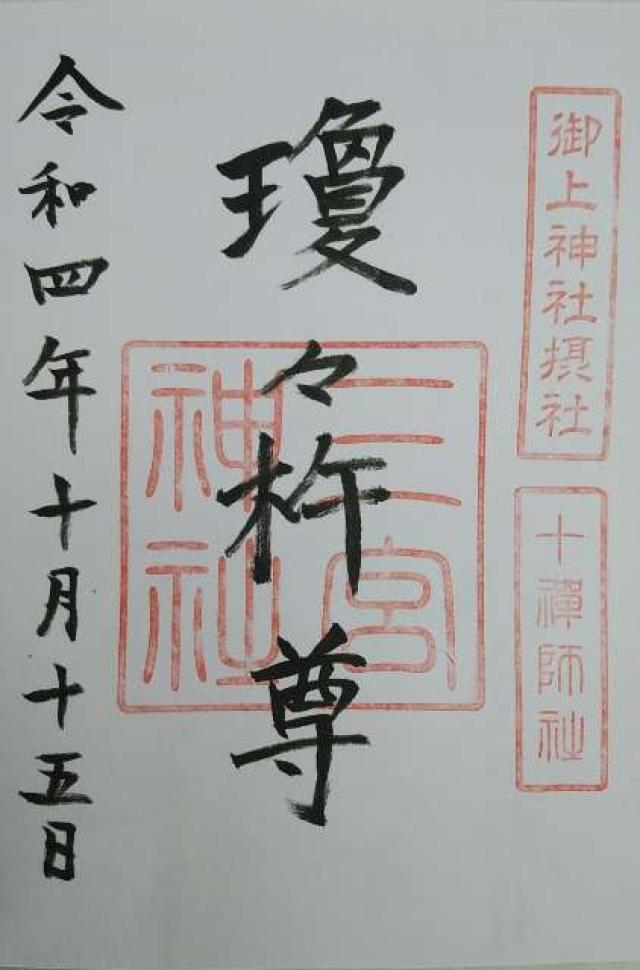 御上神社摂社
十禅師社
瓊々杵尊
三宮神社
令和四年十月十五日